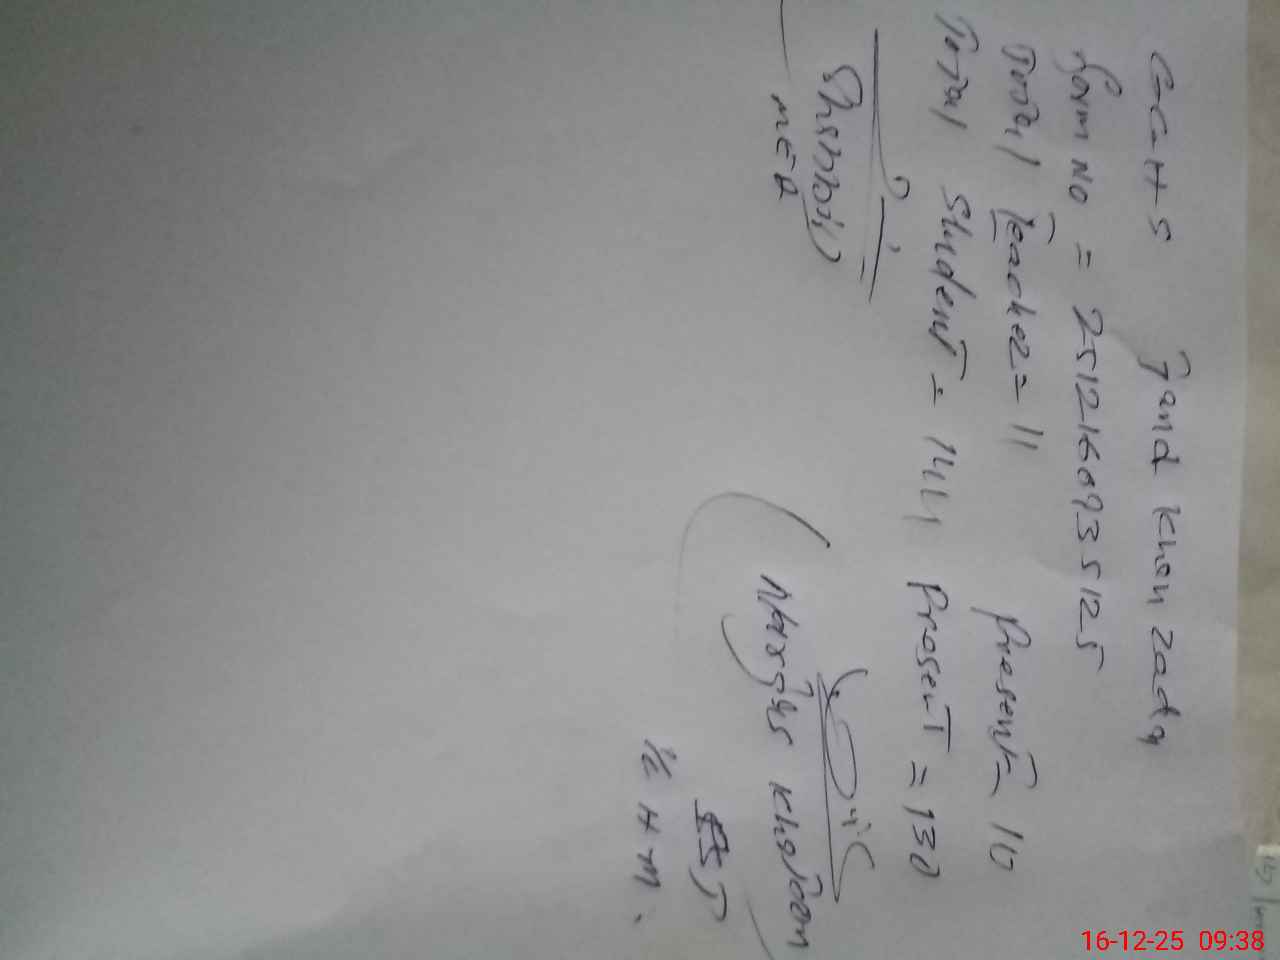 GGHS Jand Khan zada
form NO = 2512160935125
Total Teacher = 11 Present = 10
Total Student = 144 Present = 130
MEA
Nargas Khatoon
SST
I/C H M.
16-12-25 09:38